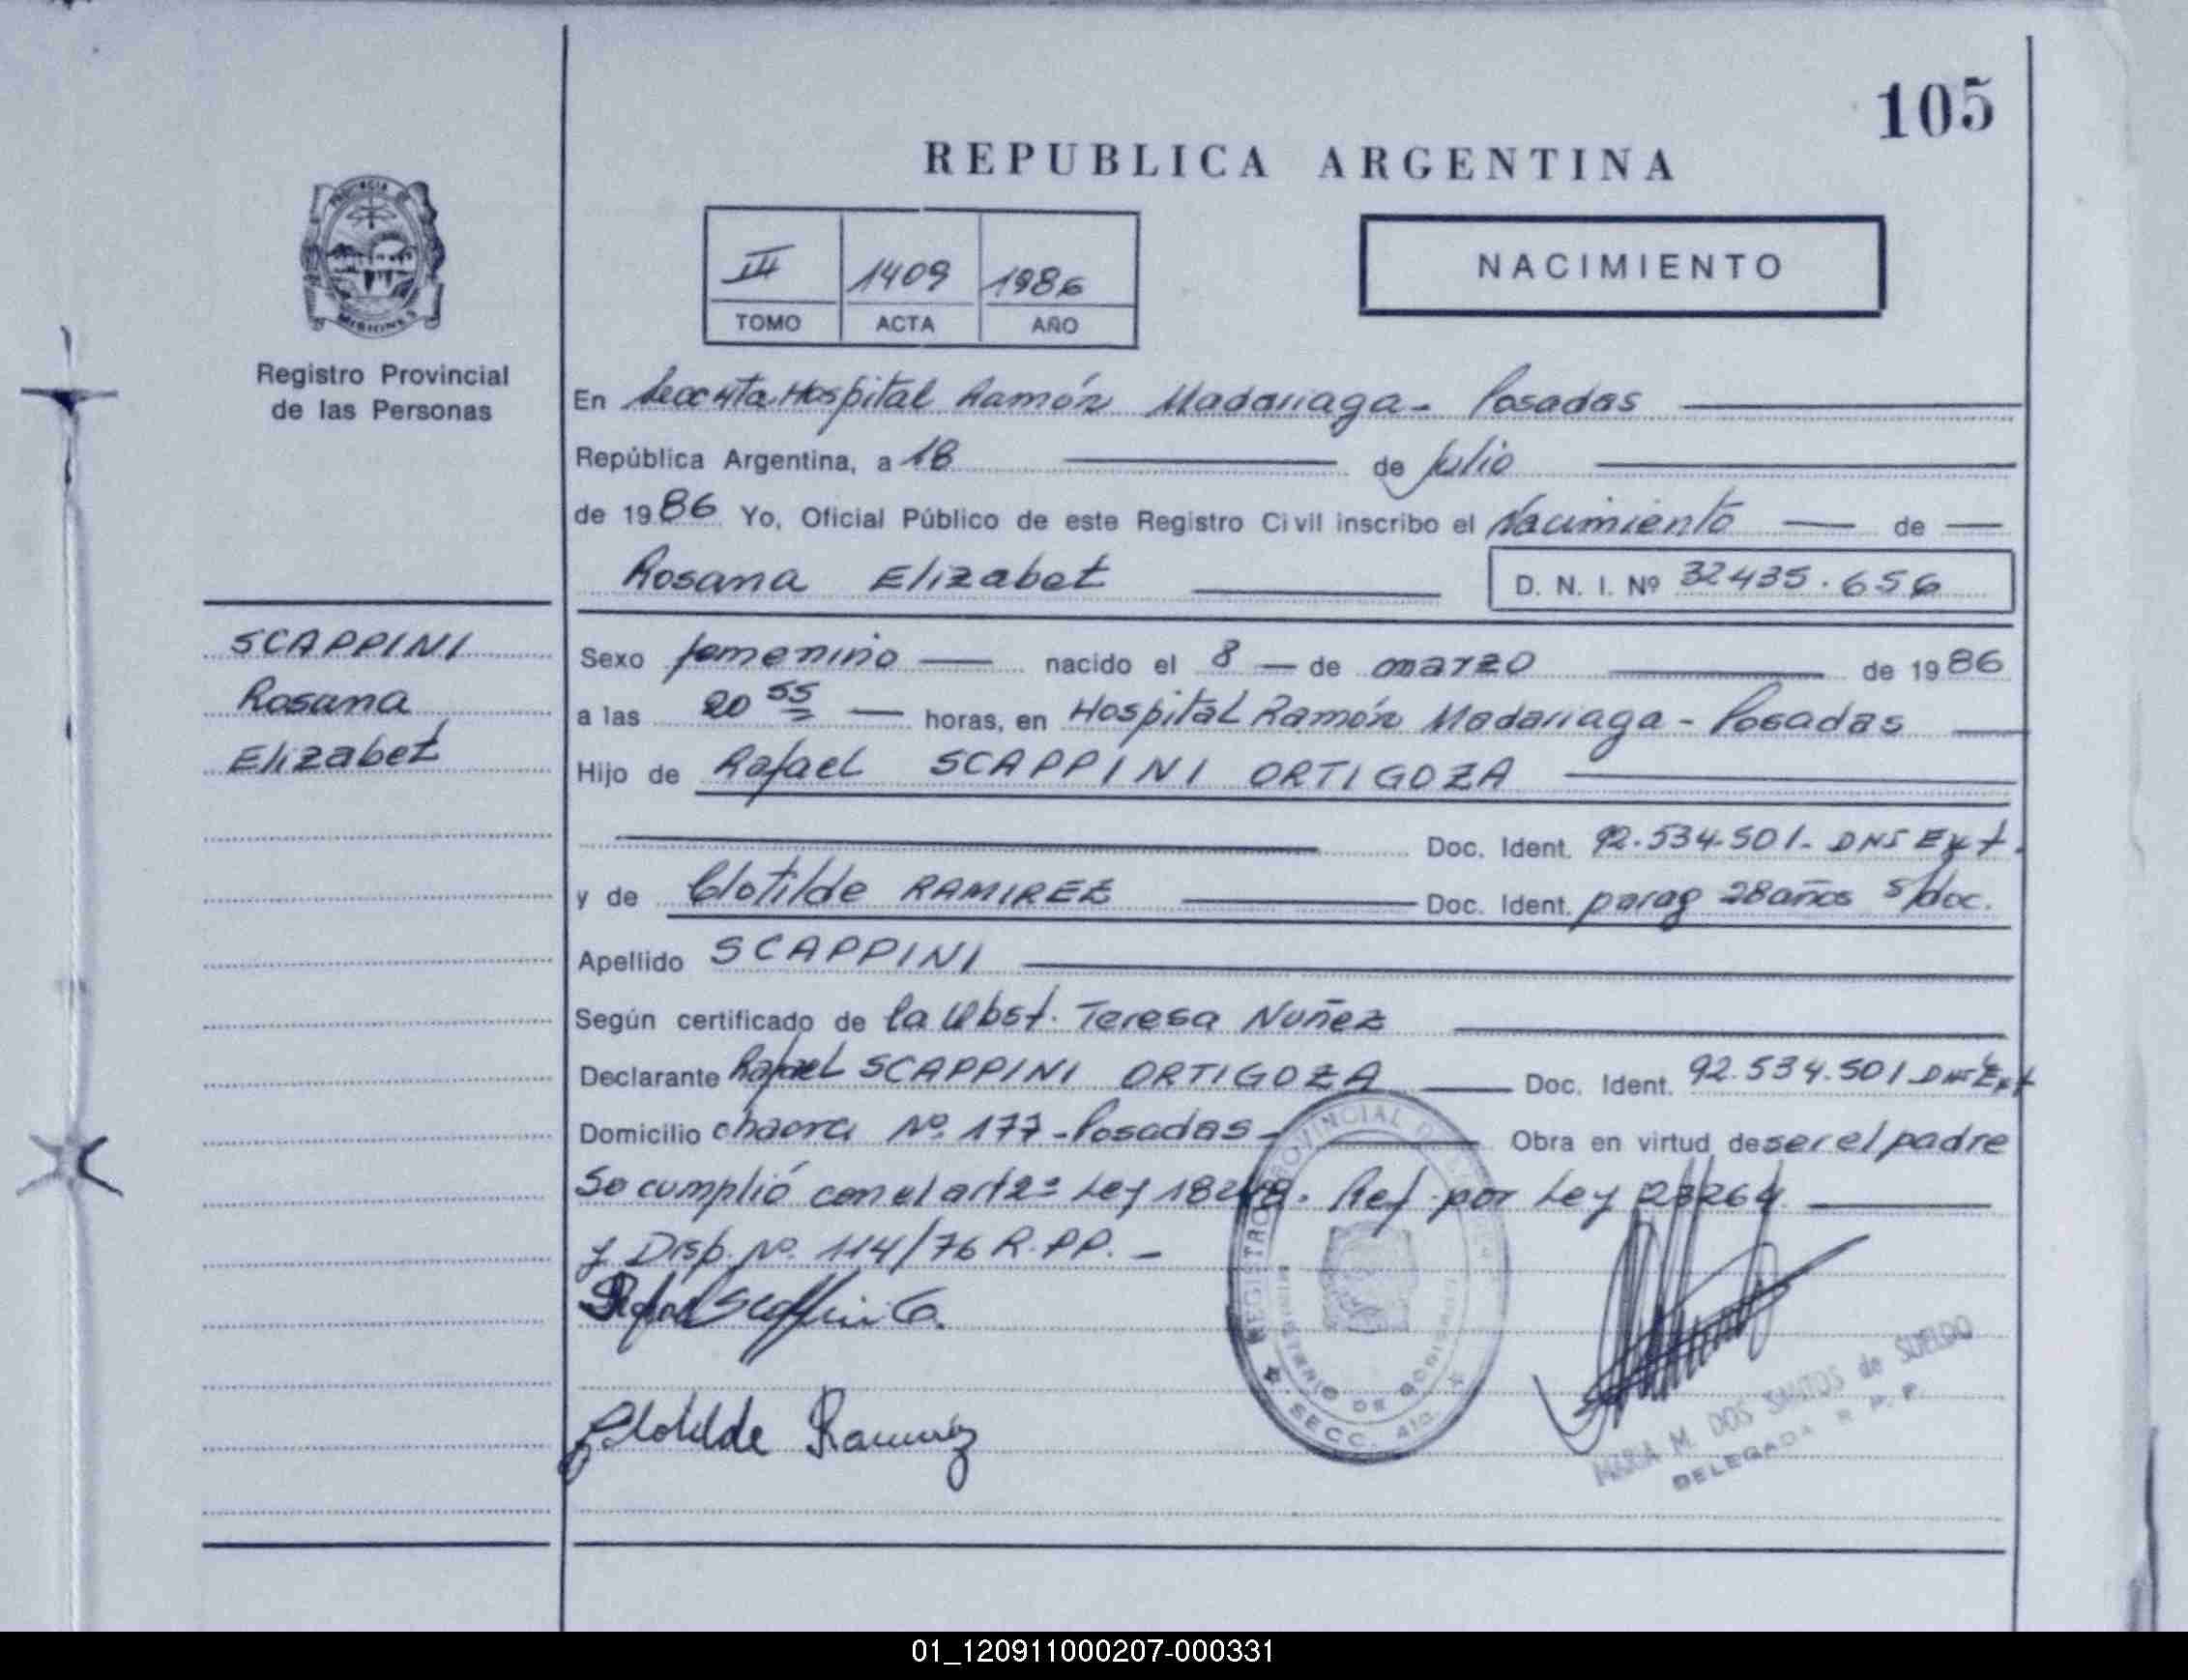 105
REPUBLICA ARGENTINA
PROVINCIA DE
MISIONES
Registro Provincial
de las Personas
III 1409 1986
TOMO ACTA AÑO
NACIMIENTO
En Secc 4ta Hospital Ramón Madariaga - Posadas
República Argentina, a 18 de Julio
de 1986 Yo, Oficial Público de este Registro Civil inscribo el Nacimiento de
Rosana Elizabet D. N. I. Nº 32435.656
SCAPPINI
Rosana
Elizabet
Sexo femenino nacido el 8 de marzo de 1986
a las 20 55 horas, en Hospital Ramón Madariaga - Posadas
Hijo de Rafael SCAPPINI ORTIGOZA
Doc. Ident. 92.534.501. DNI Ext.
y de Clotilde RAMIREZ Doc. Ident. parag 28 años s/doc.
Apellido SCAPPINI
Según certificado de la Obst. Teresa Nuñez
Declarante Rafael SCAPPINI ORTIGOZA Doc. Ident. 92.534.501 DNI Ext
Domicilio chacra Nº 177 - Posadas - Obra en virtud de ser el padre
Se cumplió con el art 2º Ley 18248. Ref. por Ley 23264
y Disp. Nº 114/76 R.P.P. -
Rafael Scappini O.
Clotilde Ramirez
REGISTRO PROVINCIAL DE
MINISTERIO DE GOBIERNO
SECC. 4ta.
MARIA M. DOS SANTOS de SUELDO
DELEGADA R. P. P.
01_120911000207-000331